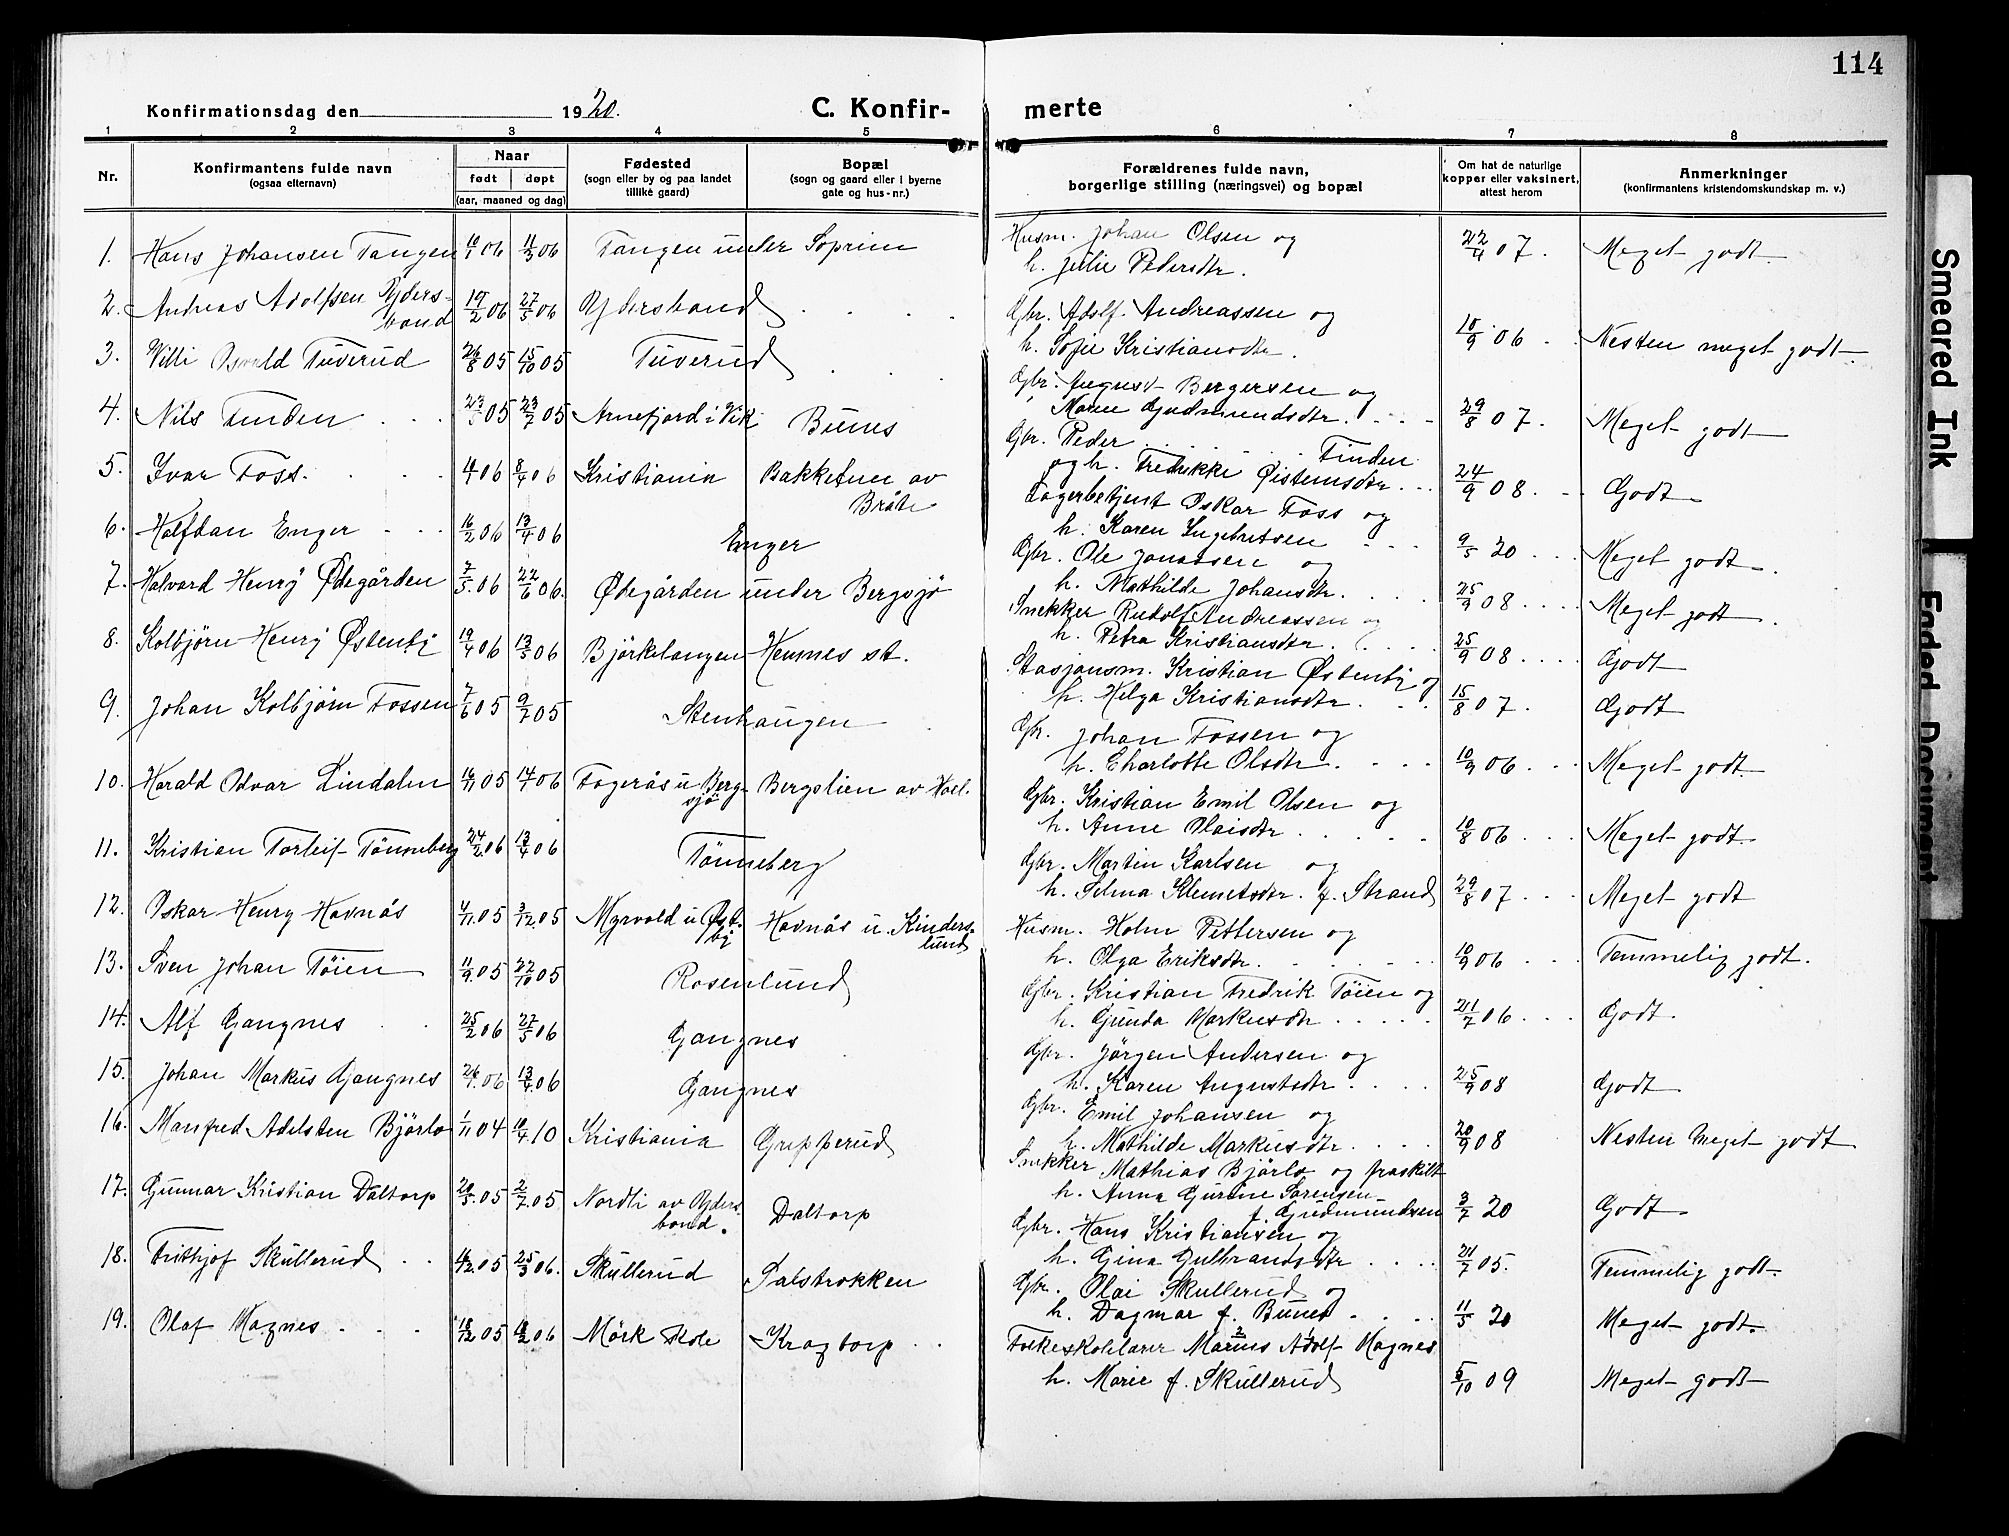 114
Konfirmationsdag den 1920.
C. Konfirmerte
1 2 3 4 5 6 7 8
Nr.
Konfirmantens fulde navn
(ogsaa efternavn)
Naar
født døpt
(aar, maaned og dag)
Fødested
(sogn eller by og paa landet
tillike gaard)
Bopæl
(sogn og gaard eller i byerne
gate og hus-nr.)
Forældrenes fulde navn,
borgerlige stilling (næringsvei) og bopæl
Om hat de naturlige
kopper eller vaksinert,
attest herom
Anmerkninger
(konfirmantens kristendomskundskap m. v.)
1. Hans Johansen Tangen 10/1 06 11/3 06 Tangen under Soprim
Husm. Johan Olsen og
h. Julie Pedersdtr. 22/4 07. Meget godt
2. Andreas Adolfsen Gjders-
bond 19/2 06 27/5 06 Gjdersbond
Gbr. Adolf Andreassen og
h. Sofie Kristiansdtr. 10/9 06 Nesten meget godt.
3. Villi Osvald Tuverud 26/8 05 15/10 05 Tuverud
Gbr. August Bergersen og
Maren Gudmundsdtr. 29/8 07. Meget godt
4. Nils Finden 05 23/7 05 Arnefjord i Vik Bunes
Gbr. Peder Finden
og h. Fredrikke Øistensdtr. 24/9 08. Godt
5. Ivar Foss. 06 8/4 06 Kristiania Bakketun av
Bråte
Lagerbetjent Oskar Foss og
h. Karen Ingebretsen 9/5 20 Meget godt.
6. Halfdan Enger 16/2 06 13/4 06 Enger
Gbr. Ole Jonassen og
h. Mathilde Johansdtr. 25/9 08 Meget godt.
7. Halvard Henry Ødegården 7/5 06 22/6 06. Ødegården under Bergsjö
Snekker Rudolf Andreassen og
h. Petra Kristiansdtr. 25/9 08 Godt
8. Kolbjörn Henry Østenby 19/4 06 13/5 06 Björkelangen Hemnes st.
Stasjonsm. Kristian Østenby og
h. Helga Kristiansdtr. 15/8 07. Godt
9. Johan Kolbjörn Fossen 7/6 05 9/7 05 Stenhaugen
Gbr. Johan Fossen og
h. Charlotte Olsdtr. 10/9 06 Meget godt.
10. Harald Odvar Lindalen 16/11 05 14/1 06 Fogerås u Berg-
sjö Bergslien av Hoel.
Gbr. Kristian Emil Olsen og
h. Anne Olaisdtr. 10/8 06 Meget godt.
11. Kristian Torleif Tönneberg 24/2 06 13/4 06 Tönneberg
Gbr. Martin Karlsen og
h. Selma Klemetsdtr. f. Strand 29/8 07 Meget godt
12. Oskar Henry Havnås 4/11 05 3/12 05 Myrvold u Øst-
by Havnås u. Kinders-
lund
Husm. Holm Pettersen og
h. Olga Eriksdtr. 10/9 06 Temmelig godt.
13. Sven Johan Töien 11/9 05 22/10 05 Rosenlund
Gbr. Kristian Fredrik Töien og
h. Gunda Markusdtr 21/7 06 Godt.
14. Alf Gangnes 25/2 06 27/5 06 Gangnes
Gbr. Jörgen Andersen og
h. Karen Augustsdtr. 25/9 08 Godt
15. Johan Markus Gangnes 26/1 06 13/4 06 Gangnes
Gbr. Emil Johansen og
h. Mathilde Markusdtr. 20/9 08 Nesten Meget godt
16. Manfred Adelsten Björlo 1/11 04 10/4 10 Kristiania Gripperud
Snekker Mathias Björlo og fraskilt
h. Anna Gurine Sorensen
f. Gudmundsen 3/7 20 Godt
17. Gunnar Kristian Daltorp 20/5 05 2/7 05 Nordli av Gjders-
bond. Daltorp
Gbr. Hans Kristiansen og
h. Gina Gulbrandsdtr 21/7 05. Temmelig godt.
18. Frithjof Skullerud 05 25/3 06. Skullerud Salstrokken
Gbr. Olai Skullerud og
h. Dagmar f. Bunes 11/5 20 Meget godt.
19. Olaf Hagnes 18/12 05 18/2 06 Mörk skole Kragtorp
Folkeskolelærer Marius Adolf Hagnes
h. Marie f. Skullerud 5/10 09 Meget godt
Smeared Ink
Faded Document